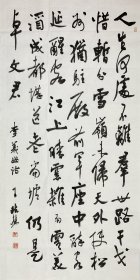 人生何處不離群世路干戈
惜暫分雪嶺未歸天外使松
州猶駐殿前軍座中醉客
延醒客江上晴雲雜雨雲美
酒成都堪送老當垆仍是
卓文君 李義山詩